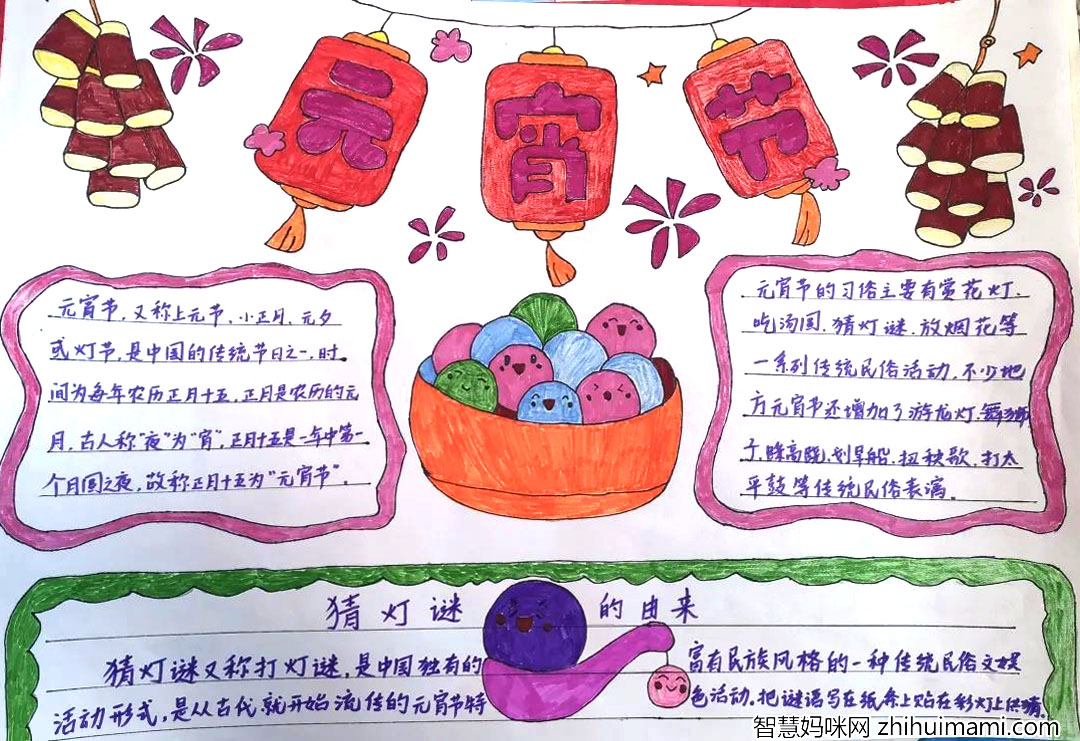 元宵节
元宵节，又称上元节、小正月、元夕
或灯节，是中国的传统节日之一，时
间为每年农历正月十五，正月是农历的元
月，古人称"夜"为"宵"，正月十五是一年中第一
个月圆之夜，故称正月十五为"元宵节"。
元宵节的习俗主要有赏花灯、
吃汤圆、猜灯谜、放烟花等
一系列传统民俗活动，不少地
方元宵节还增加了游龙灯、舞狮
子、踩高跷、划旱船、扭秧歌、打太
平鼓等传统民俗表演。
猜灯谜的由来
猜灯谜又称打灯谜，是中国独有的富有民族风格的一种传统民俗文娱
活动形式，是从古代就开始流传的元宵节特色活动。把谜语写在纸条上贴在彩灯上供猜。
智慧妈咪网 zhihuimami.com